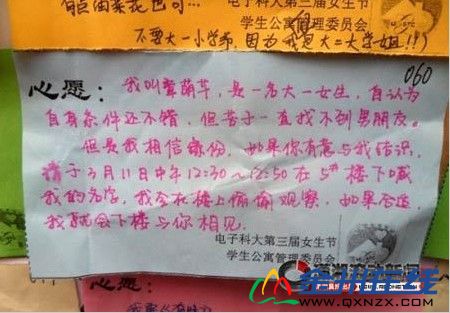 油菜花也可
电子科大第三届女生节
学生公寓管理委员会
不要大一小学弟，因为我是大二大学姐!!)
060
心愿： 我叫萌芊，是一名大一女生，自认为
自身条件还不错，但苦于一直找不到男朋友。
但是我相信缘份，如果你有意与我结识，
请于3月11日中午12:30～12:50在5#楼下喊
我的名字，我会在楼上偷偷观察，如果合适
我就会下楼与你相见。
电子科大第三届女生节
学生公寓管理委员会
新闻
在线
WWW.QXNZX.COM
心愿：